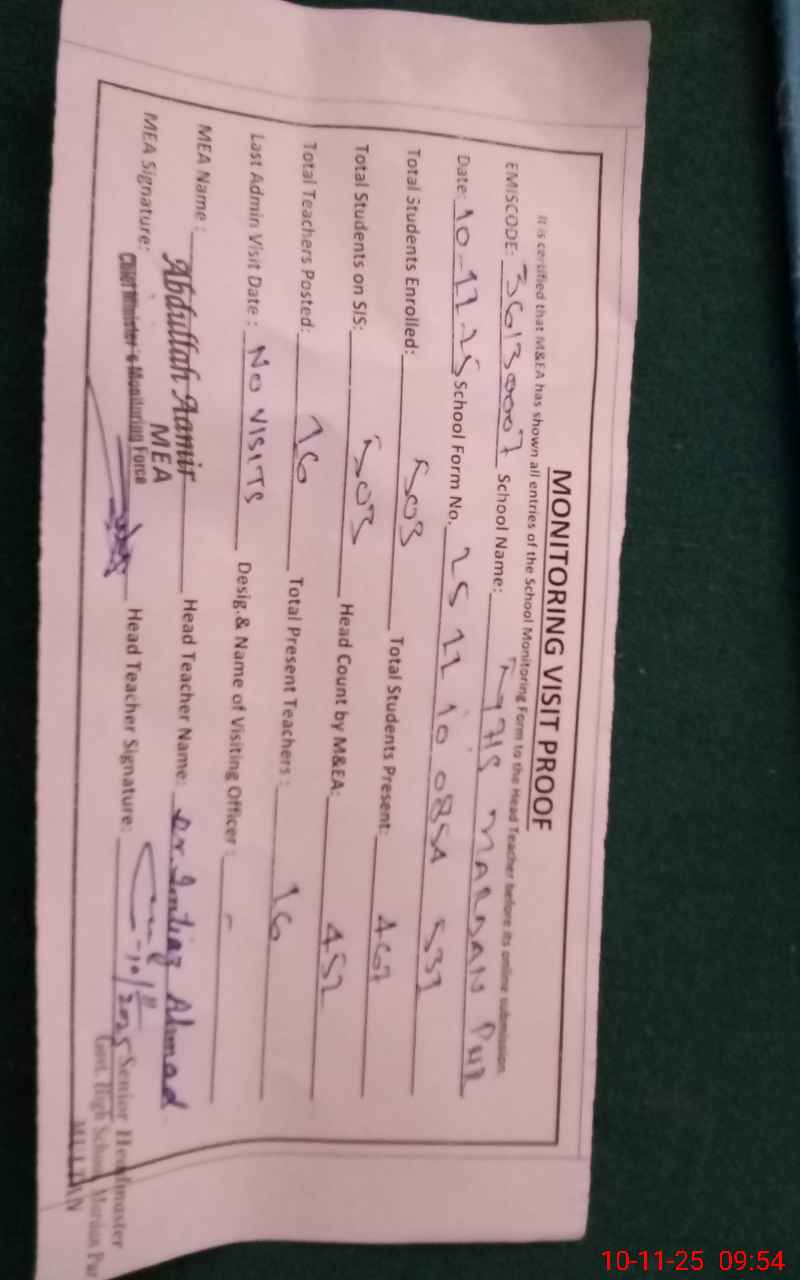 MONITORING VISIT PROOF
It is certified that M&EA has shown all entries of the School Monitoring Form to the Head Teacher before its online submission.
EMISCODE: 36130007 School Name: GHS MARDAN PUR
Date: 10-11-25 School Form No. 25 11 10 0854 531
Total Students Enrolled: 503 Total Students Present: 467
Total Students on SIS: 503 Head Count by M&EA: 451
Total Teachers Posted: 16 Total Present Teachers : 16
Last Admin Visit Date : NO VISITS Desig.& Name of Visiting Officer : -
MEA Name : Abdullah Aamir Head Teacher Name: Dr Imtiaz Ahmad
MEA
MEA Signature: Chief Minister's Monitoring Force Head Teacher Signature: 10/11/2025
Senior Headmaster
Govt. High School Mardan Pur
MULTAN
10-11-25 09:54